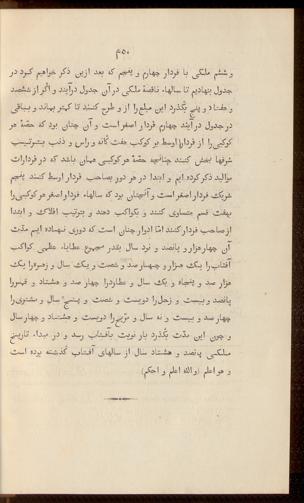 ٤٥٠
و ششم ملکی با فردار چهارم و پنجم که بعد ازین ذکر خواهیم کرد در
جدول بنهادیم تا سالهاء ناقصهٔ ملکی در آن جدول درآیند و اگر از ششصد
و هفتاد و پنج بگذرد این مبلغ را از و طرح کنند تا کمتر بماند و بباقی
در جدول درآیند چهارم فردار اصغر است و آن چنان بود که حصهٔ هر
کوکبی را از فردار اوسط بر کوکب هفت گانه و راس و ذنب بترتیب
شرفها بخش کنند چنانچه حصهٔ هر کوکبی همان باشد که در فردارات
موالید ذکر کرده ایم و ابتدا در هر دور بصاحب فردار اوسط کنند پنجم
شریک فردار اصغر است و آنچنان بود که سالهاء فردار اصغر هر کوکبی را
بهفت قسم متساوی کنند و بکواکب دهند و بترتیب افلاک و ابتدا
از صاحب فردار کنند امّا ادوار چنان است که دوری نهاده ایم مدّت
آن چهار هزار و پانصد و نود سال بقدر مجموع عطایاء عظمی کواکب
آفتاب را یک هزار و چهار صد و شصت و یک سال و زهره را یک
هزار صد و پنجاه و یک سال و عطارد را چهار صد و هشتاد و قمر را
پانصد و بیست و زحل را دویست و شصت و پنج سال و مشتری را
چهار صد و بیست و نه سال و مرّیخ را دویست و هشتاد و چهار سال
و چون این مدّت بگذرد باز نوبت بآفتاب رسد و در مبداء تاریخ
ملکی پانصد و هشتاد سال از سالهای آفتاب گذشته بوده است
و هو اعلم (والله اعلم و احکم)